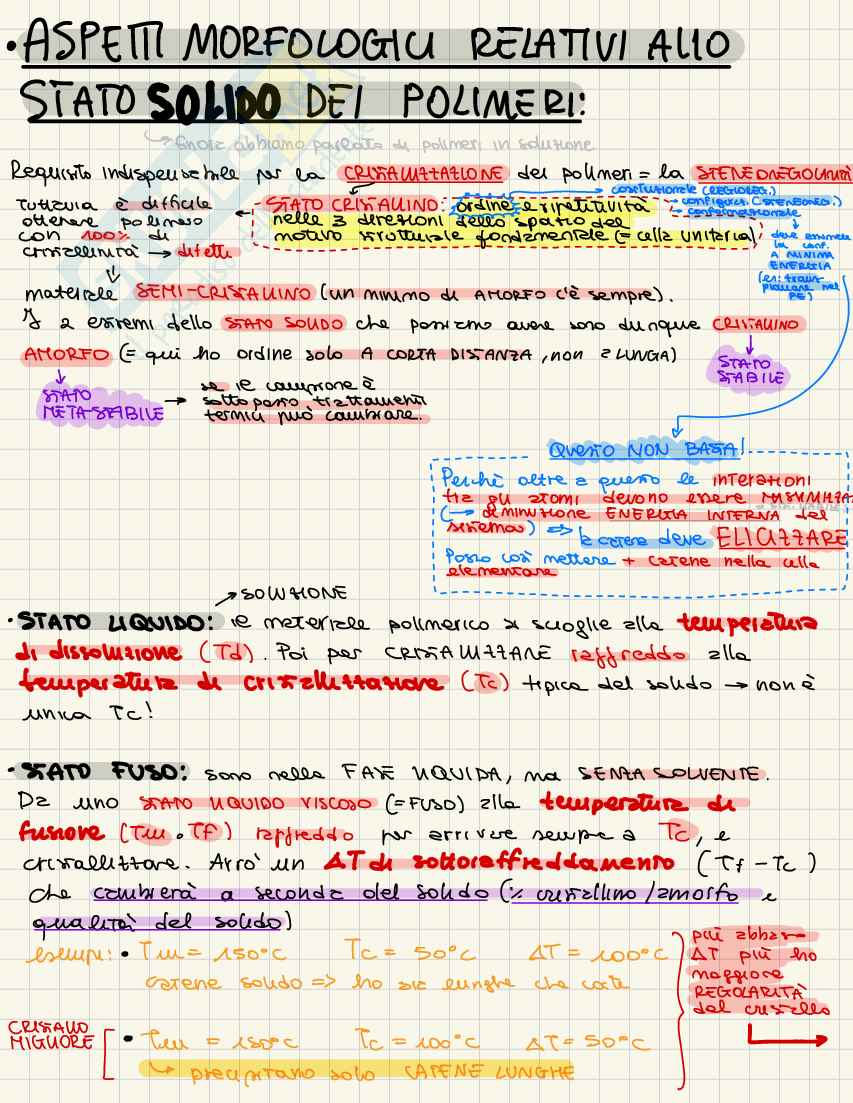 • ASPETTI MORFOLOGICI RELATIVI ALLO
STATO SOLIDO DEI POLIMERI:
finora abbiamo parlato di polimeri in soluzione
Requisito indispensabile per la CRISTALLIZZAZIONE dei polimeri = la STEREOREGOLARITÀ
Tuttavia è difficile
ottenere polimero
con 100% di
cristallinità → difetti
STATO CRISTALLINO: ordine e ripetitività
nelle 3 direzioni dello spazio del
motivo strutturale fondamentale (= cella unitaria)
costituzionale (REGIOREG.)
- configuraz. (STEREOREG.)
- conformazionale
deve assumere
la conf.
A MINIMA
ENERGIA
(es: trans-
planare nel
PE)
materiale SEMI-CRISTALLINO (un minimo di AMORFO c'è sempre).
I 2 estremi dello STATO SOLIDO che possiamo avere sono dunque CRISTALLINO
AMORFO (= qui ho ordine solo A CORTA DISTANZA, non a LUNGA)
STATO
STABILE
STATO
META-STABILE
→ se il campione è
sottoposto trattamenti
termici può cambiare.
QUESTO NON BASTA!
Perchè oltre a questo le interazioni
tra gli atomi devono essere MASSIMIZZA
(→ diminuzione ENERGIA INTERNA del
sistema) => la catena deve ELICIZZARE
Posso così mettere + catene nella cella
elementare
→ SOLUZIONE
• STATO LIQUIDO: il materiale polimerico si scioglie alla temperatura
di dissoluzione (Td). Poi per CRISTALLIZZARE raffreddo alla
temperatura di cristallizzazione (Tc) tipica del solido → non è
unica Tc!
• STATO FUSO: sono nella FASE LIQUIDA, ma SENZA SOLVENTE.
Da uno STATO LIQUIDO VISCOSO (=FUSO) alla temperatura di
fusione (Tm o Tf) raffreddo per arrivare sempre a Tc, e
cristallizzare. Avrò un ΔT di sottoraffreddamento (Tf - Tc)
che cambierà a seconda del solido (% cristallino/amorfo e
qualità del solido)
esempi: • Tm = 150°C Tc = 50°C ΔT = 100°C
catene solido => ho sia lunghe che corte
CRISTALLO
MIGLIORE
• Tm = 150°C Tc = 100°C ΔT = 50°C
precipitano solo CATENE LUNGHE
più abbas-
ΔT più ho
maggiore
REGOLARITÀ
del cristallo